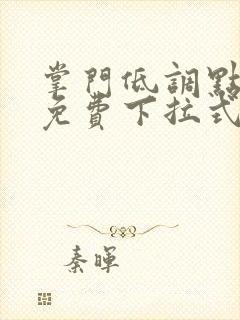 掌門低調點
免費下拉式
秦暉